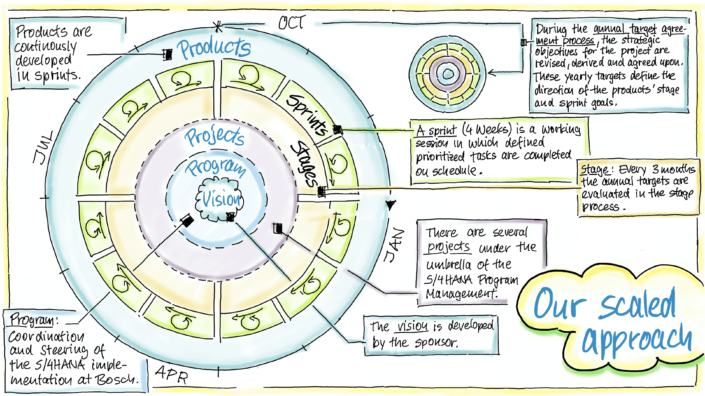 Products are
continously
developed
in sprints.
OCT
Products
During the annual target agree-
ment process, the strategic
objectives for the project are
revised, derived and agreed upon.
These yearly targets define the
direction of the products' stage
and sprint goals.
Sprints
A sprint (4 Weeks) is a working
session in which defined
prioritized tasks are completed
on schedule.
JUL
Projects
Stages
Program
Stage: Every 3 months
the annual targets are
evaluated in the stage
process.
Vision
JAN
There are several
projects under the
umbrella of the
S/4HANA Program
Management.
Our scaled
approach
Program:
Coordination
and Steering of
the S/4HANA imple-
mentation at Bosch.
The vision is developed
by the sponsor.
APR